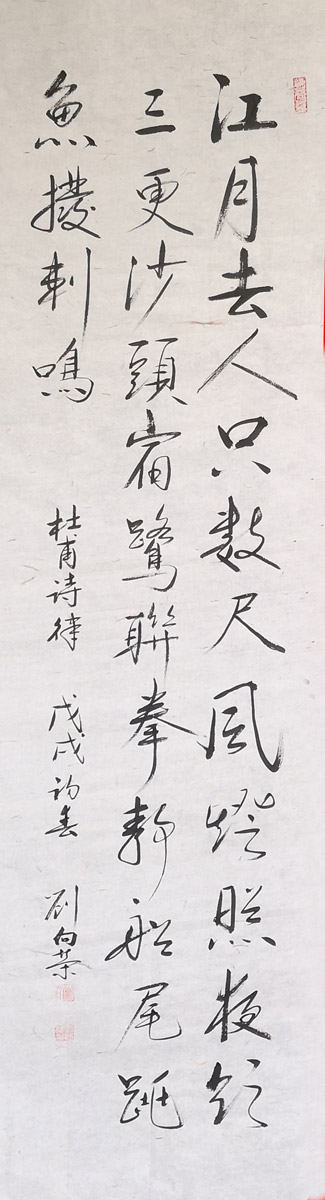 江月去人只数尺風燈照夜欲
三更沙頭宿鷺聯拳静船尾跳
魚撥剌鳴
杜甫诗律 戊戌初春 劉向荣